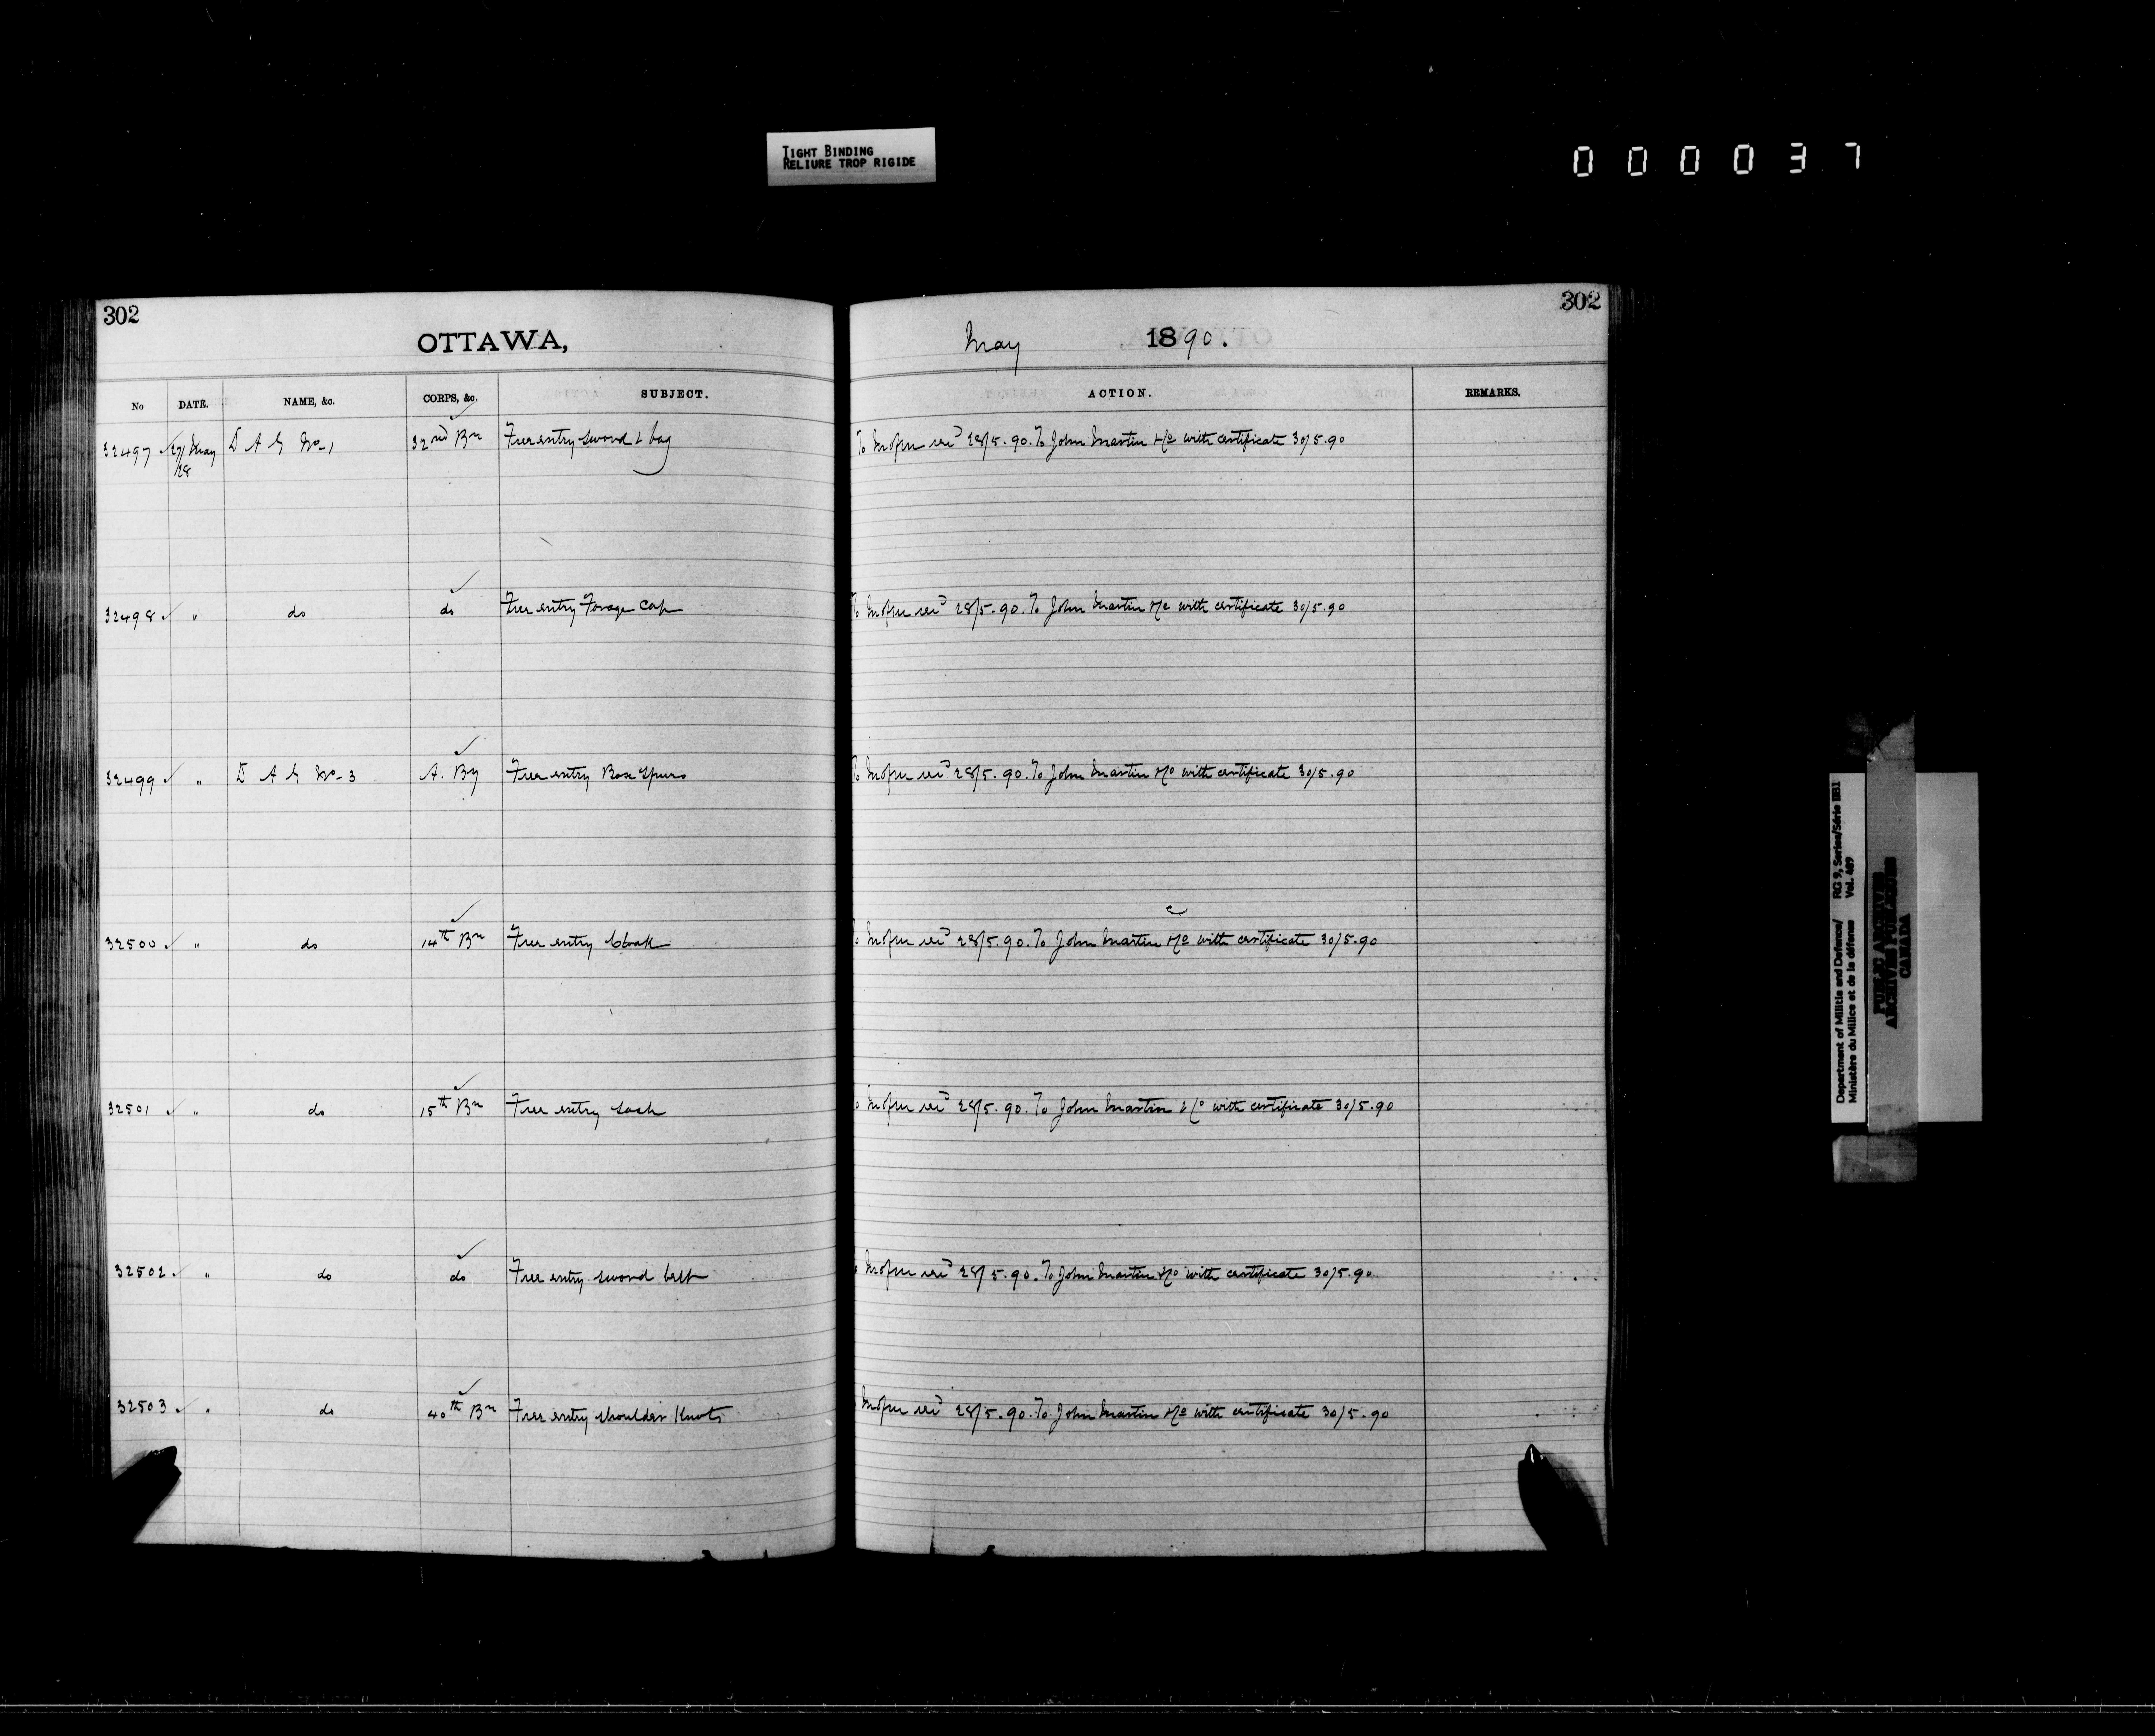 TIGHT BINDING
RELIURE TROP RIGIDE
000037
302
302
OTTAWA,
May 1890.
No DATE. NAME, &c. CORPS, &c. SUBJECT. ACTION. REMARKS.
32497 ✓ 27/ May D A G No-1 32nd Bn Free entry sword & bag To 28/5.90. To John Martin &Co with certificate 30/5.90
28
32498 ✓ " do do Free entry Forage Cap To 28/5.90. To John Martin &Co with certificate 30/5.90
32499 ✓ " D A G No-3 A. By Free entry Box Spurs To 28/5.90. To John Martin &Co with certificate 30/5.90
32500 ✓ " do 14th Bn Free entry Cloak 28/5.90. To John Martin &Co with certificate 30/5.90
32501 ✓ " do 15th Bn Free entry Sash 28/5.90. To John Martin &Co with certificate 30/5.90
32502 ✓ " do do Free entry sword belt 28/5.90. To John Martin &Co with certificate 30/5.90
32503 ✓ " do 40th Bn Free entry shoulder Knots 28/5.90. To John Martin &Co with certificate 30/5.90
Department of Militia and Defence/ RG 9, Series/Série IIB1
Ministère du Milice et de la défense Vol. 489
PUBLIC ARCHIVES
ARCHIVES PUBLIQUES
CANADA